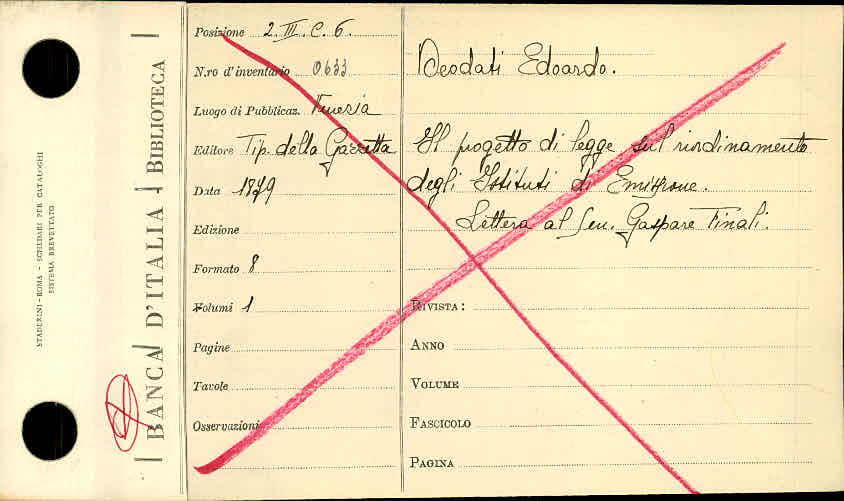 STADERINI - ROMA - SCHEDARI PER CATALOGHI
SISTEMA BREVETTATO
BANCA D'ITALIA BIBLIOTECA
Posizione 2. III. C. 6.
N.ro d'inventario 0633
Luogo di Pubblicaz. Venezia
Editore Tip. della Gazzetta
Data 1879
Edizione
Formato 8
Volumi 1
Pagine
Tavole
Osservazioni
Deodati Edoardo.
Il progetto di legge sul riordinamento
degli Istituti di Emissione.
Lettera al Sen. Gaspare Finali.
RIVISTA:
ANNO
VOLUME
FASCICOLO
PAGINA